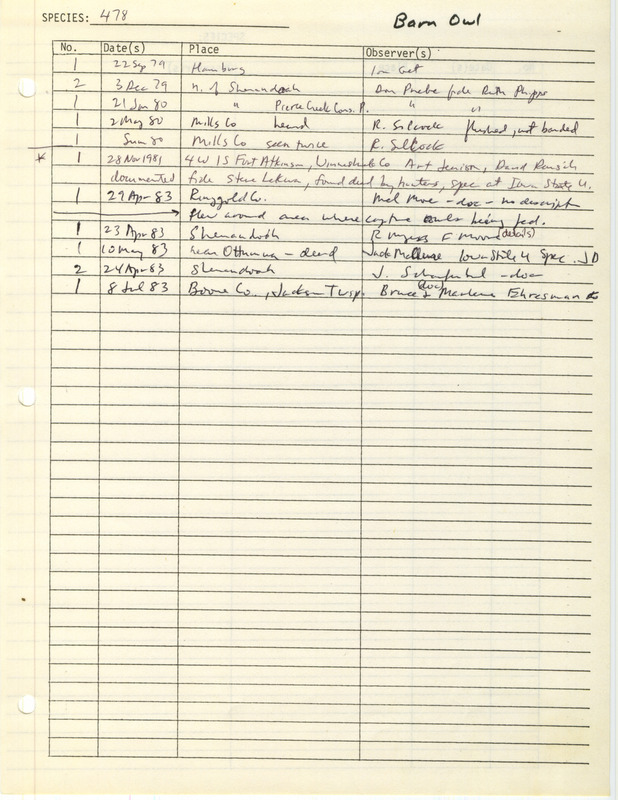 SPECIES: 478 Barn Owl
No. Date(s) Place Observer(s)
1 22 Sep 79 Hamburg
2 3 Dec 79 n. of Shenandoah Don Priebe fide Ruth Phipps
1 21 Jan 80 " Pierce Creek Cons. P. " "
1 2 May 80 Mills Co heard R. Silcock flushed, not banded
1 Sum 80 Mills Co seen twice R. Silcock
* 1 28 Nov 1981 4 W 1 S Fort Atkinson, Winneshiek Co Art Jenison, David
documented fide Steve Lekwa, found dead by hunters, spec at Iowa State U.
1 29 Apr 83 Ringgold Co. Mel Moe - doc - no descriptn
flew around area where captive owls being fed.
1 23 Apr 83 Shenandoah R Myers F Moore (details)
1 10 May 83 near Ottumwa - dead Jack Iowa State U Spec. JD
2 24 Apr 83 Shenandoah J. - doc
1 8 Jul 83 Boone Co., Jackson Twsp. Bruce & Marlene Ehresman doc